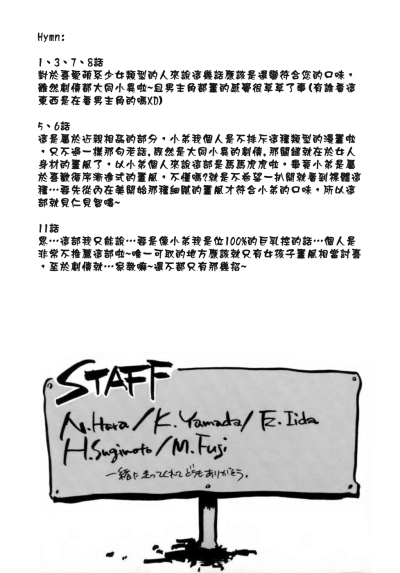 Hymn:
1、3、7、8話
對於喜愛萌系少女類型的人來說這幾話應該是還蠻符合您的口味，
雖然劇情都大同小異啦~且男主角都畫的感覺很草草了事(有誰看這
東西是在看男主角的嗎XD)
5、6話
這是屬於近親相姦的部分，小弟我個人是不排斥這種類型的漫畫啦
，只不過一樣那句老話，既然是大同小異的劇情，那關鍵就在於女人
身材的畫風了，以小弟個人來說這部是馬馬虎虎啦，畢竟小弟是屬
於喜歡循序漸進式的畫風，不僅嗎?就是不希望一扒開就看到裸體這
種…要先從內在美開始那種細膩的畫風才符合小弟的口味，所以這
部就見仁見智囉~
11話
恩…這部我只能說…要是像小弟我是位100%的巨乳控的話…個人是
非常不推薦這部啦~唯一可取的地方應該就只有女孩子畫風相當討喜
，至於劇情就…家教嘛~還不都只有那幾招~
STAFF
N.Hara/K.Yamada/E.Iida
H.Sugimoto/M.Fuji
一緒に走ってくれてどうもありがとう。